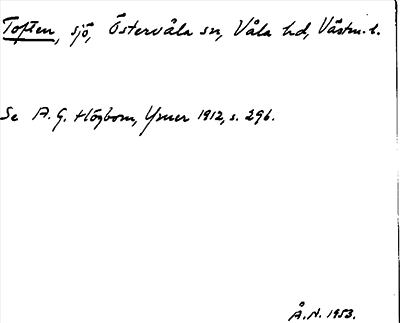 Toften, sjö, Östervåla sn, Våla hd, Västm. l.
Se A. G. Högbom, Ymer 1912, s. 296.
Å. N. 1953.